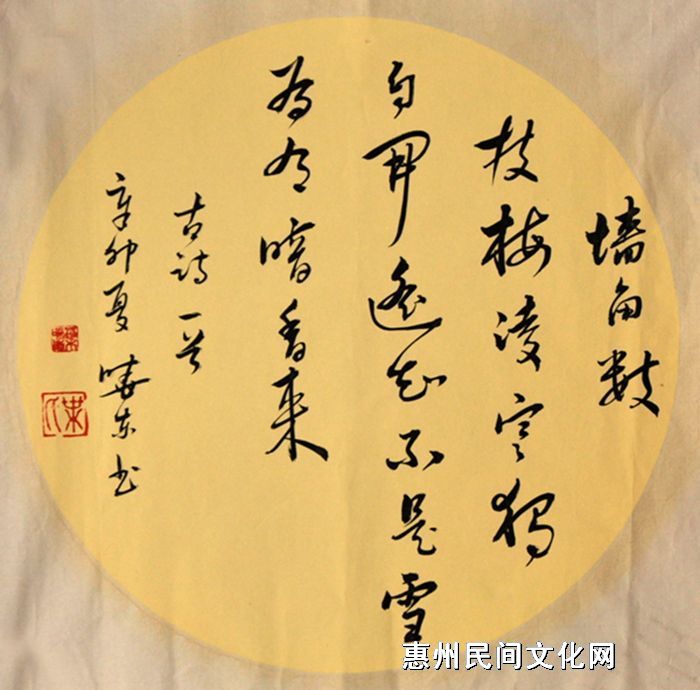 墙角数
枝梅凌寒独
自开遥知不是雪
为有暗香来
古诗一首
辛卯夏晓东书
惠州民间文化网